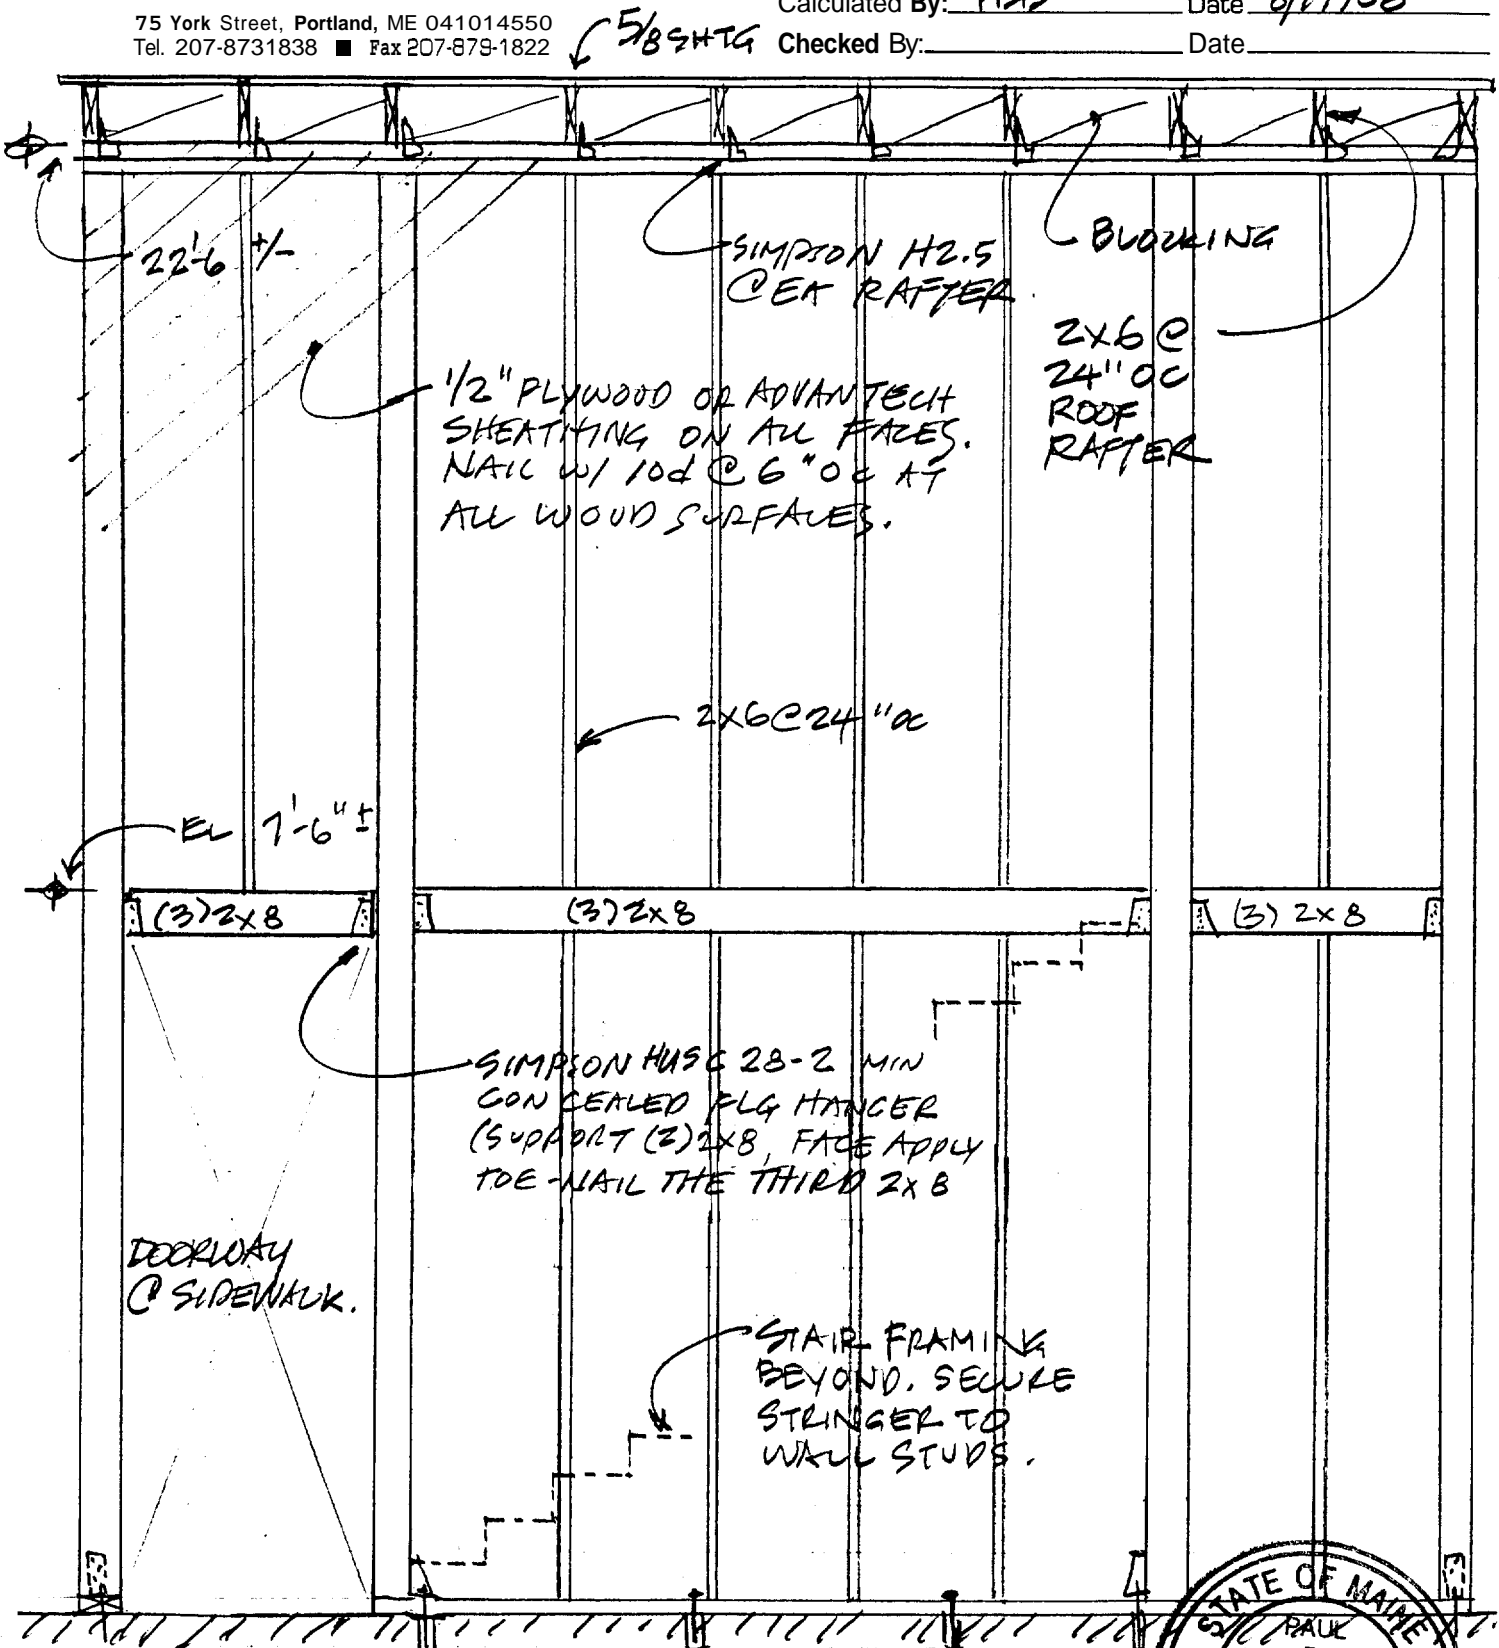 75 York Street, Portland, ME 041014550
Tel. 207-8731838 ■ Fax 207-879-1822
Calculated By: Date
Checked By: Date
5/8 SHTG
22'-6 +/-
SIMPSON H2.5
@ EA RAFTER
BLOCKING
2x6 @
24" OC
ROOF
RAFTER
1/2" PLYWOOD OR ADVANTECH
SHEATHING ON ALL FACES.
NAIL W/ 10d @ 6" OC AT
ALL WOOD SURFACES.
2x6@24"OC
EL 7'-6" ±
(3) 2x8
(3) 2x8
(3) 2x8
SIMPSON HUSC 28-2 MIN
CONCEALED FLG HANGER
(SUPPORT (2) 2x8, FACE APPLY
TOE-NAIL THE THIRD 2x8
DOORWAY
@ SIDEWALK.
STAIR FRAMING
BEYOND. SECURE
STRINGER TO
WALL STUDS.
STATE OF MAINE
PAUL